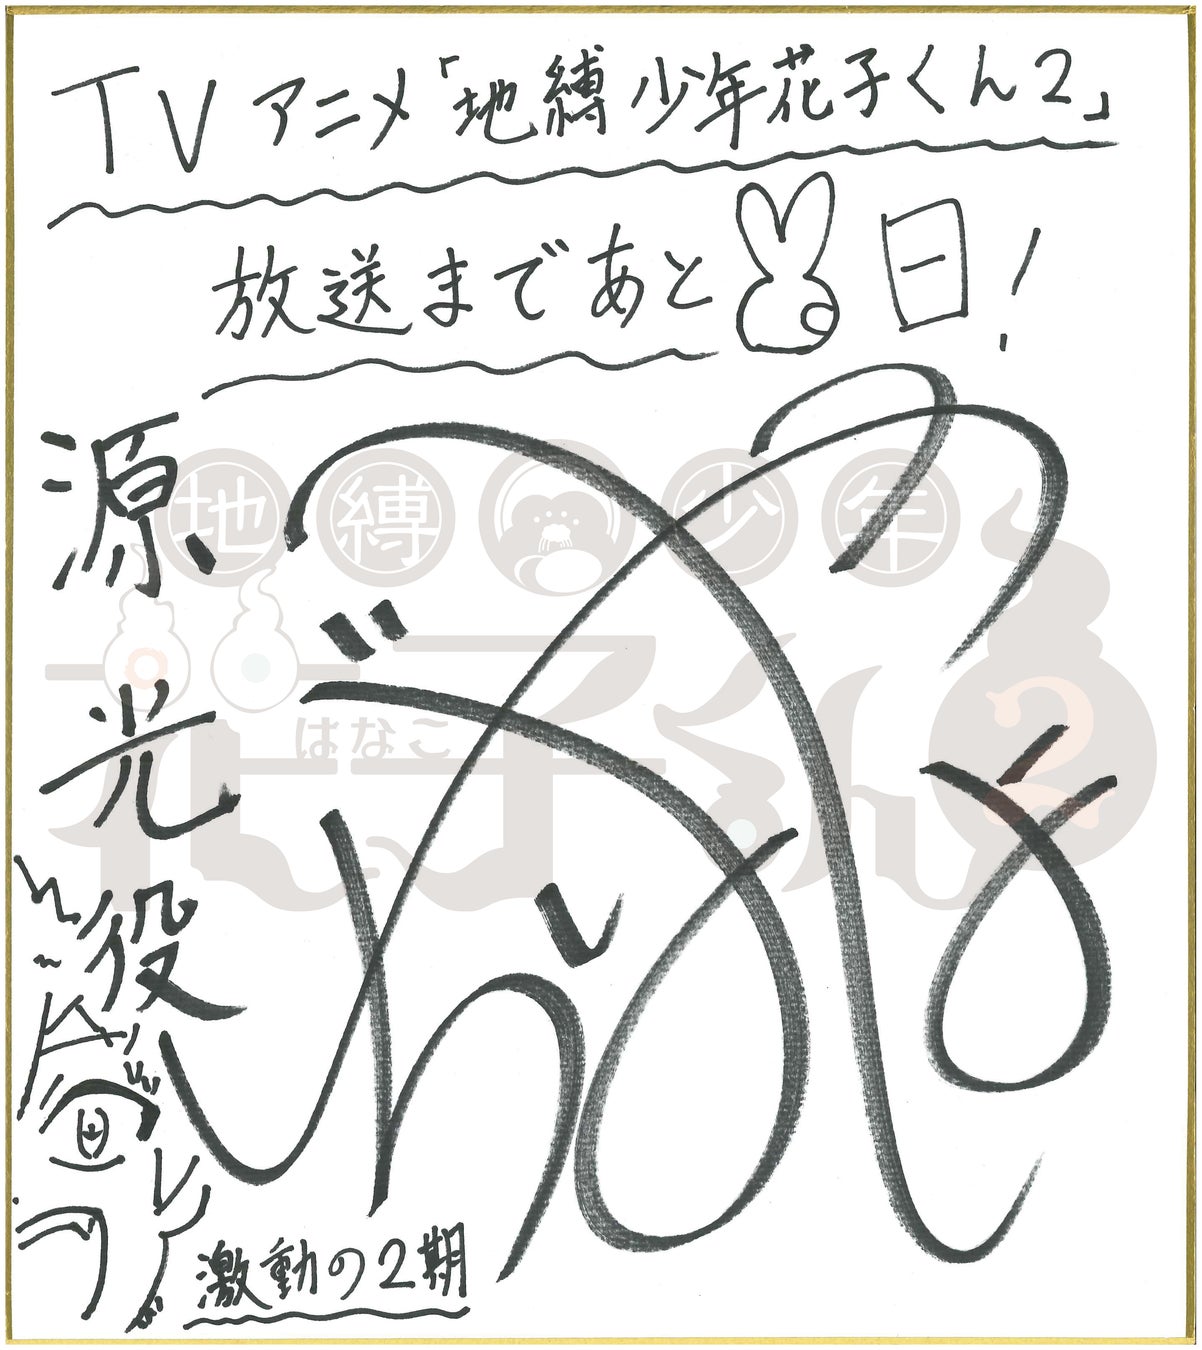 TVアニメ「地縛少年花子くん2」
放送まであと日!
源光役
激動の2期
地縛少年
花子くん2
はなこ